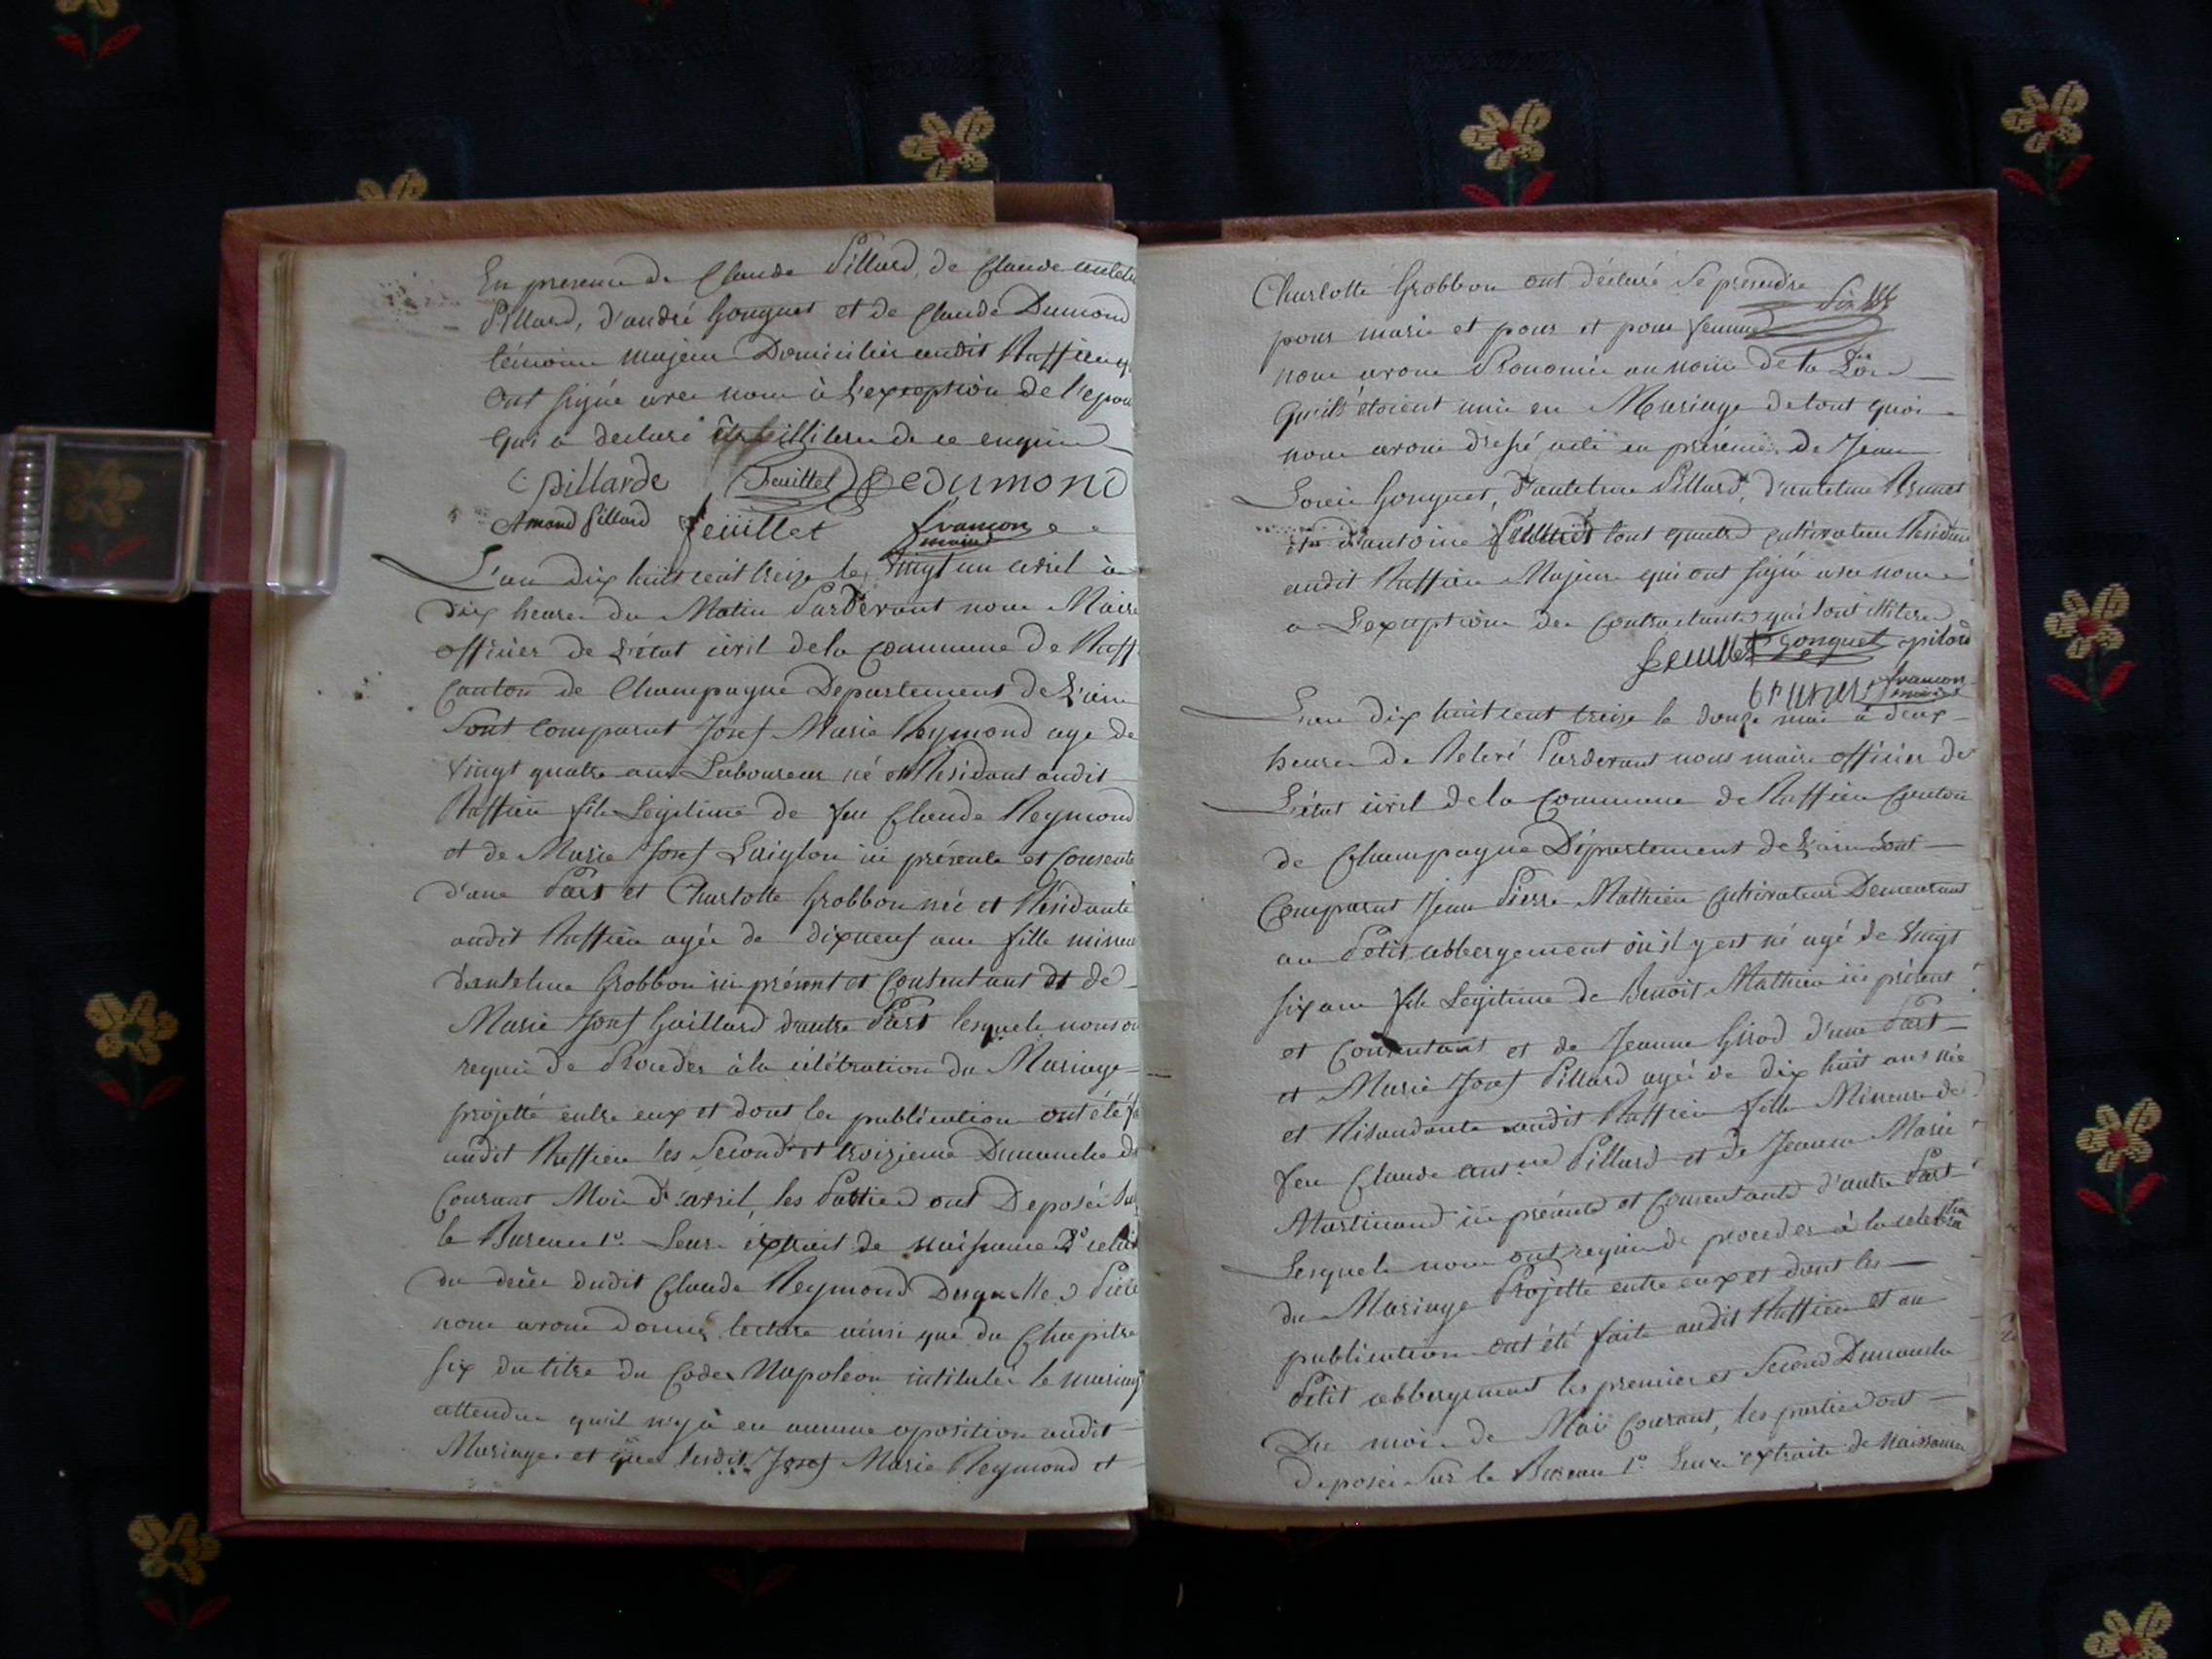 En presence de Claude Pillard, de Claude antelme
Pillard, d'andré Gonguet et de Claude Dumond
témoins majeurs Domiciliés audit Ruffieu qui
ont signé avec nous à l'exception de l'epouse
qui a declaré être illiteré de ce enquise
C pillarde feuillet C Dumond
Amand Pillard feuillet francon
maire
L'an dix huit cent treize le vingt un avril à
dix heures du Matin Pardevant nous Maire
officier de L'état civil de la commune de Ruff
Canton de Champagne Departement de L'ain
Sont comparut Josef Marie Reymond age de
vingt quatre ans Laboureur né et Résidant audit
Ruffieu fils Legitime de feu Claude Reymond
et de Marie Josef Laiglon ici présente et Consente
d'une Part et Charlotte Grobbon née et Résidante
audit Ruffieu agée de dixneuf ans fille mineure
d'antelme Grobbon ici présent et Consentant et de
Marie Josef Gaillard d'autre Part lesquels nous on
requis de Proceder à la célébration du Mariage
projetté entre eux et dont les publication ont été f
audit Ruffieu les Second et troizieme Dimanche d
Courant Mois d'avril, les Parties ont Deposés Sur
le Bureau 1° Leurs extrait de naissance 2° celui
du decès dudit Claude Reymond Desquelles Pièce
nous avons donné lecture ainsi que du Chapitre
six du titre du Code Napoleon intitulés le mariag
attendu qu'il n'y à eu aucune oposition audit
Mariage et que lesdit Josef Marie Reymond et
Charlotte Grobbon ont déclaré se prendre
pour marie et pour et pour femme
nous avons Prononcés au nom de la Loi
qu'ils étoient unis en Mariage de tout quoi
nous avons dressé acte en présence de Jean
Louis Gonguet, d'antelme Pillard, d'antelme Brunet
et d'antoine feuillet tout quatre cultivateur Résidan
audit Ruffieu Majeurs qui ont signé avec nous
a L'exception des Contractants qui sont illiteré
feuillet Gonguet apilard
brunet francon
maire
L'an dix huit cent treize le douze mai à deux
heures de Relevé Pardevant nous maire officier de
L'état civil de la Commune de Ruffieu Canton
de Champagne Département de L'ain Sont
Comparut Jean Pierre Mathieu Cultivateur Demeurant
au Petit abbergement où il y est né agé de Vingt
six ans fils Legitime de Benoit Mathieu ici présent
et Consentant et de Jeanne Girod d'une Part
et Marie Josef Pillard agée de dix huit ans née
et Résandante audit Ruffieu fille Mineure de
feu Claude antme Pillard et de Jeanne Marie
Martinand ici présente et Consentante d'autre Part
Lesquels nous ont requis de proceder à la celebration
du Mariage Projetté entre eux et dont les
publication ont été faite audit Ruffieu et au
Petit abbergement les premier et Second Dimanche
Du mois de Maii Courant, les parties ont
deposés Sur le Bureau 1° Leurs extraits de Naissance